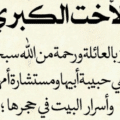 الأخت الكبري
بالعائلة ورحمة من الله سبح
ي حبيبة أبيها ومستشارة أم
وأسرار البيت في حجرها ؛